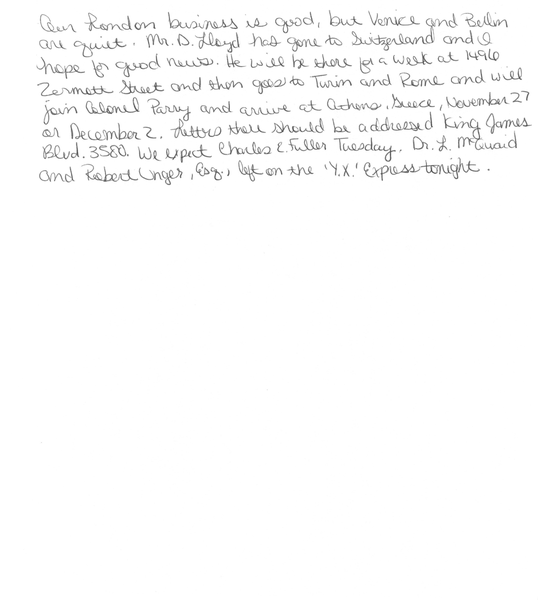 Our London business is good, but Venice and Berlin
are quiet. Mr. D. Lloyd has gone to Switzerland and I
hope for good news. He will be there for a week at 1496
Zermott Street and then goes to Turin and Rome and will
join Colonel Parry and arrive at Athens, Greece, November 27
or December 2. Letters there should be addressed King James
Blvd. 3580. We expect Charles E. Fuller Tuesday. Dr. L. McQuaid
and Robert Unger, Esq., left on the 'Y.X.' Express tonight.